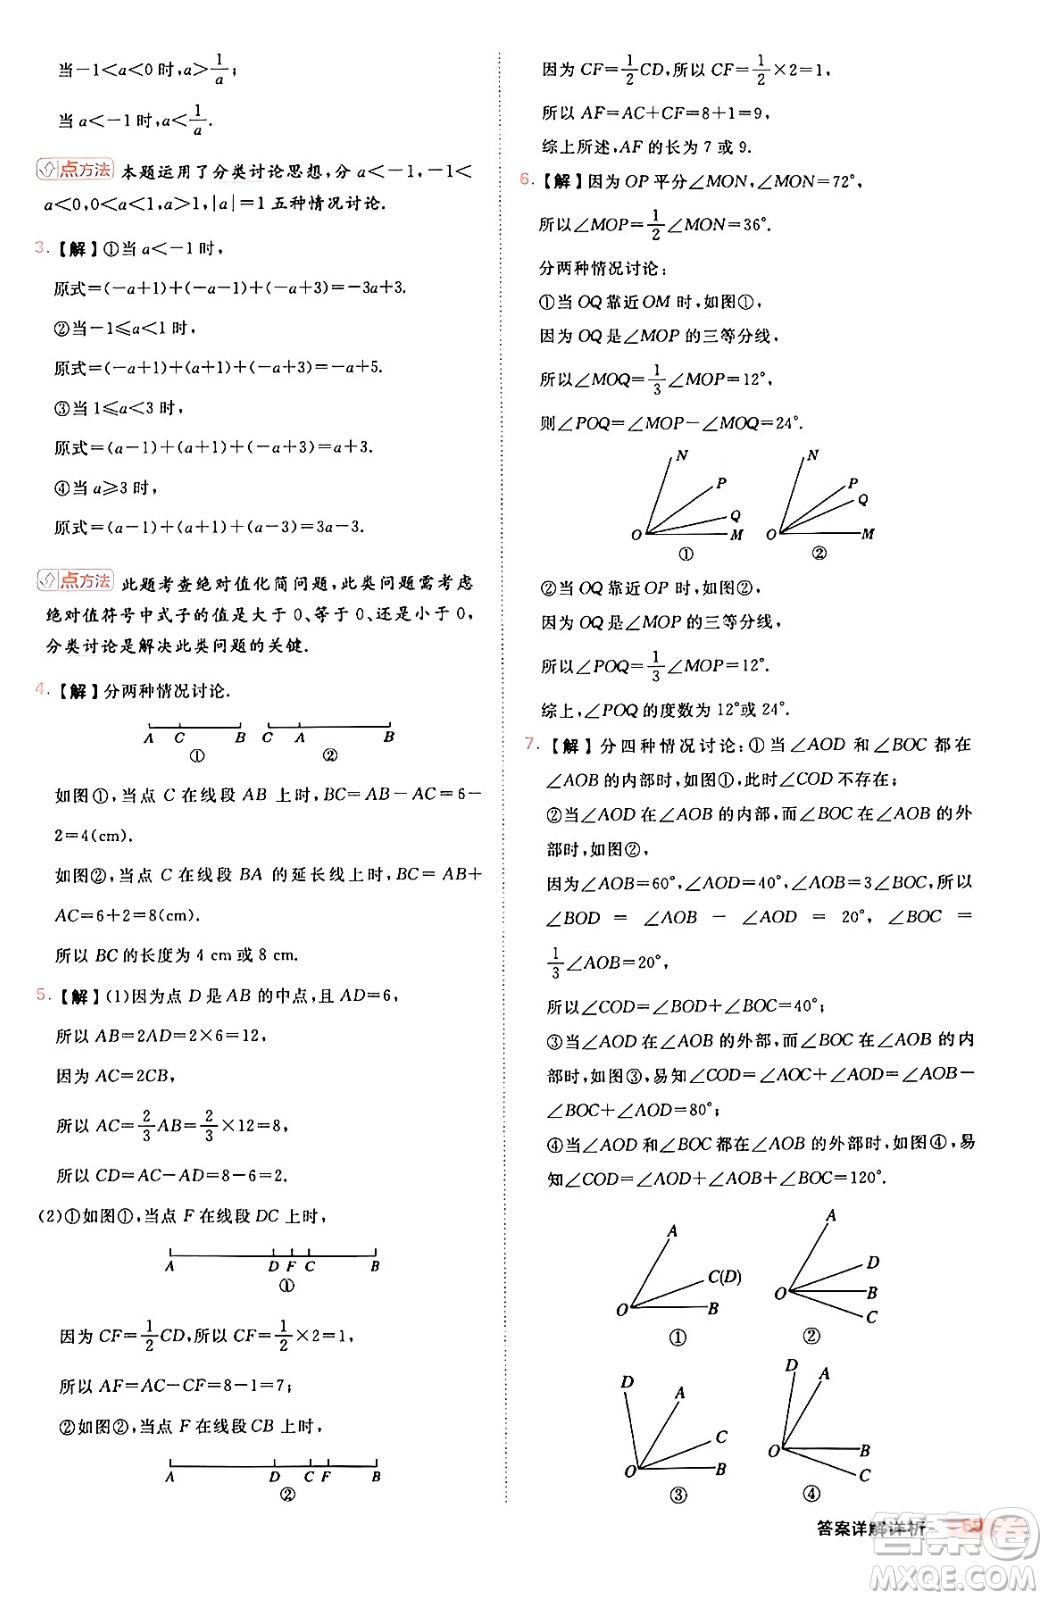 当－1＜a＜0时，a＞1/a；
当 a＜－1时，a＜1/a.
点方法 本题运用了分类讨论思想，分 a＜－1，－1＜
a＜0，0＜a＜1，a＞1，|a|＝1 五种情况讨论.
3.【解】①当 a＜－1 时，
原式＝(－a＋1)＋(－a－1)＋(－a＋3)＝－3a＋3.
②当－1⩽a＜1 时，
原式＝(－a＋1)＋(a＋1)＋(－a＋3)＝－a＋5.
③当 1⩽a＜3 时，
原式＝(a－1)＋(a＋1)＋(－a＋3)＝a＋3.
④当 a⩾3 时，
原式＝(a－1)＋(a＋1)＋(a－3)＝3a－3.
点方法 此题考查绝对值化简问题，此类问题需考虑
绝对值符号中式子的值是大于 0、等于 0、还是小于 0，
分类讨论是解决此类问题的关键.
4.【解】分两种情况讨论.
A C B C A B
① ②
如图①，当点 C 在线段 AB 上时，BC＝AB－AC＝6－
2＝4(cm).
如图②，当点 C 在线段 BA 的延长线上时，BC＝AB＋
AC＝6＋2＝8(cm).
所以 BC 的长度为 4 cm 或 8 cm.
5.【解】(1)因为点 D 是 AB 的中点，且 AD＝6，
所以 AB＝2AD＝2×6＝12，
因为 AC＝2CB，
所以 AC＝2/3AB＝2/3×12＝8，
所以 CD＝AC－AD＝8－6＝2.
(2)①如图①，当点 F 在线段 DC 上时，
A D F C B
①
因为 CF＝1/2CD，所以 CF＝1/2×2＝1，
所以 AF＝AC－CF＝8－1＝7；
②如图②，当点 F 在线段CB 上时，
A D C F B
②
因为 CF＝1/2CD，所以 CF＝1/2×2＝1，
所以 AF＝AC＋CF＝8＋1＝9，
综上所述，AF 的长为 7 或 9.
6.【解】因为 OP 平分∠MON，∠MON＝72°，
所以∠MOP＝1/2∠MON＝36°.
分两种情况讨论：
①当 OQ 靠近 OM 时，如图①，
因为 OQ 是∠MOP 的三等分线，
所以∠MOQ＝1/3∠MOP＝12°，
则∠POQ＝∠MOP－∠MOQ＝24°.
N P Q M O
①
N P Q M O
②
②当 OQ 靠近 OP 时，如图②，
因为 OQ 是∠MOP 的三等分线，
所以∠POQ＝1/3∠MOP＝12°.
综上，∠POQ 的度数为 12°或 24°.
7.【解】分四种情况讨论：①当∠AOD 和∠BOC 都在
∠AOB 的内部时，如图①，此时∠COD 不存在；
②当∠AOD 在∠AOB 的内部，而∠BOC 在∠AOB 的外
部时，如图②，
因为∠AOB＝60°，∠AOD＝40°，∠AOB＝3∠BOC，所以
∠BOD ＝ ∠AOB － ∠AOD ＝ 20°，∠BOC ＝
1/3∠AOB＝20°，
所以∠COD＝∠BOD＋∠BOC＝40°；
③当∠AOD 在∠AOB 的外部，而∠BOC 在∠AOB 的内
部时，如图③，易知∠COD＝∠AOC＋∠AOD＝∠AOB－
∠BOC＋∠AOD＝80°；
④当∠AOD 和∠BOC 都在∠AOB 的外部时，如图④，易
知∠COD＝∠AOD＋∠AOB＋∠BOC＝120°.
A C(D) B O
①
A D B C O
②
D A C B O
③
D A B C O
④
答案详解详析
答案卷
MXQE.COM